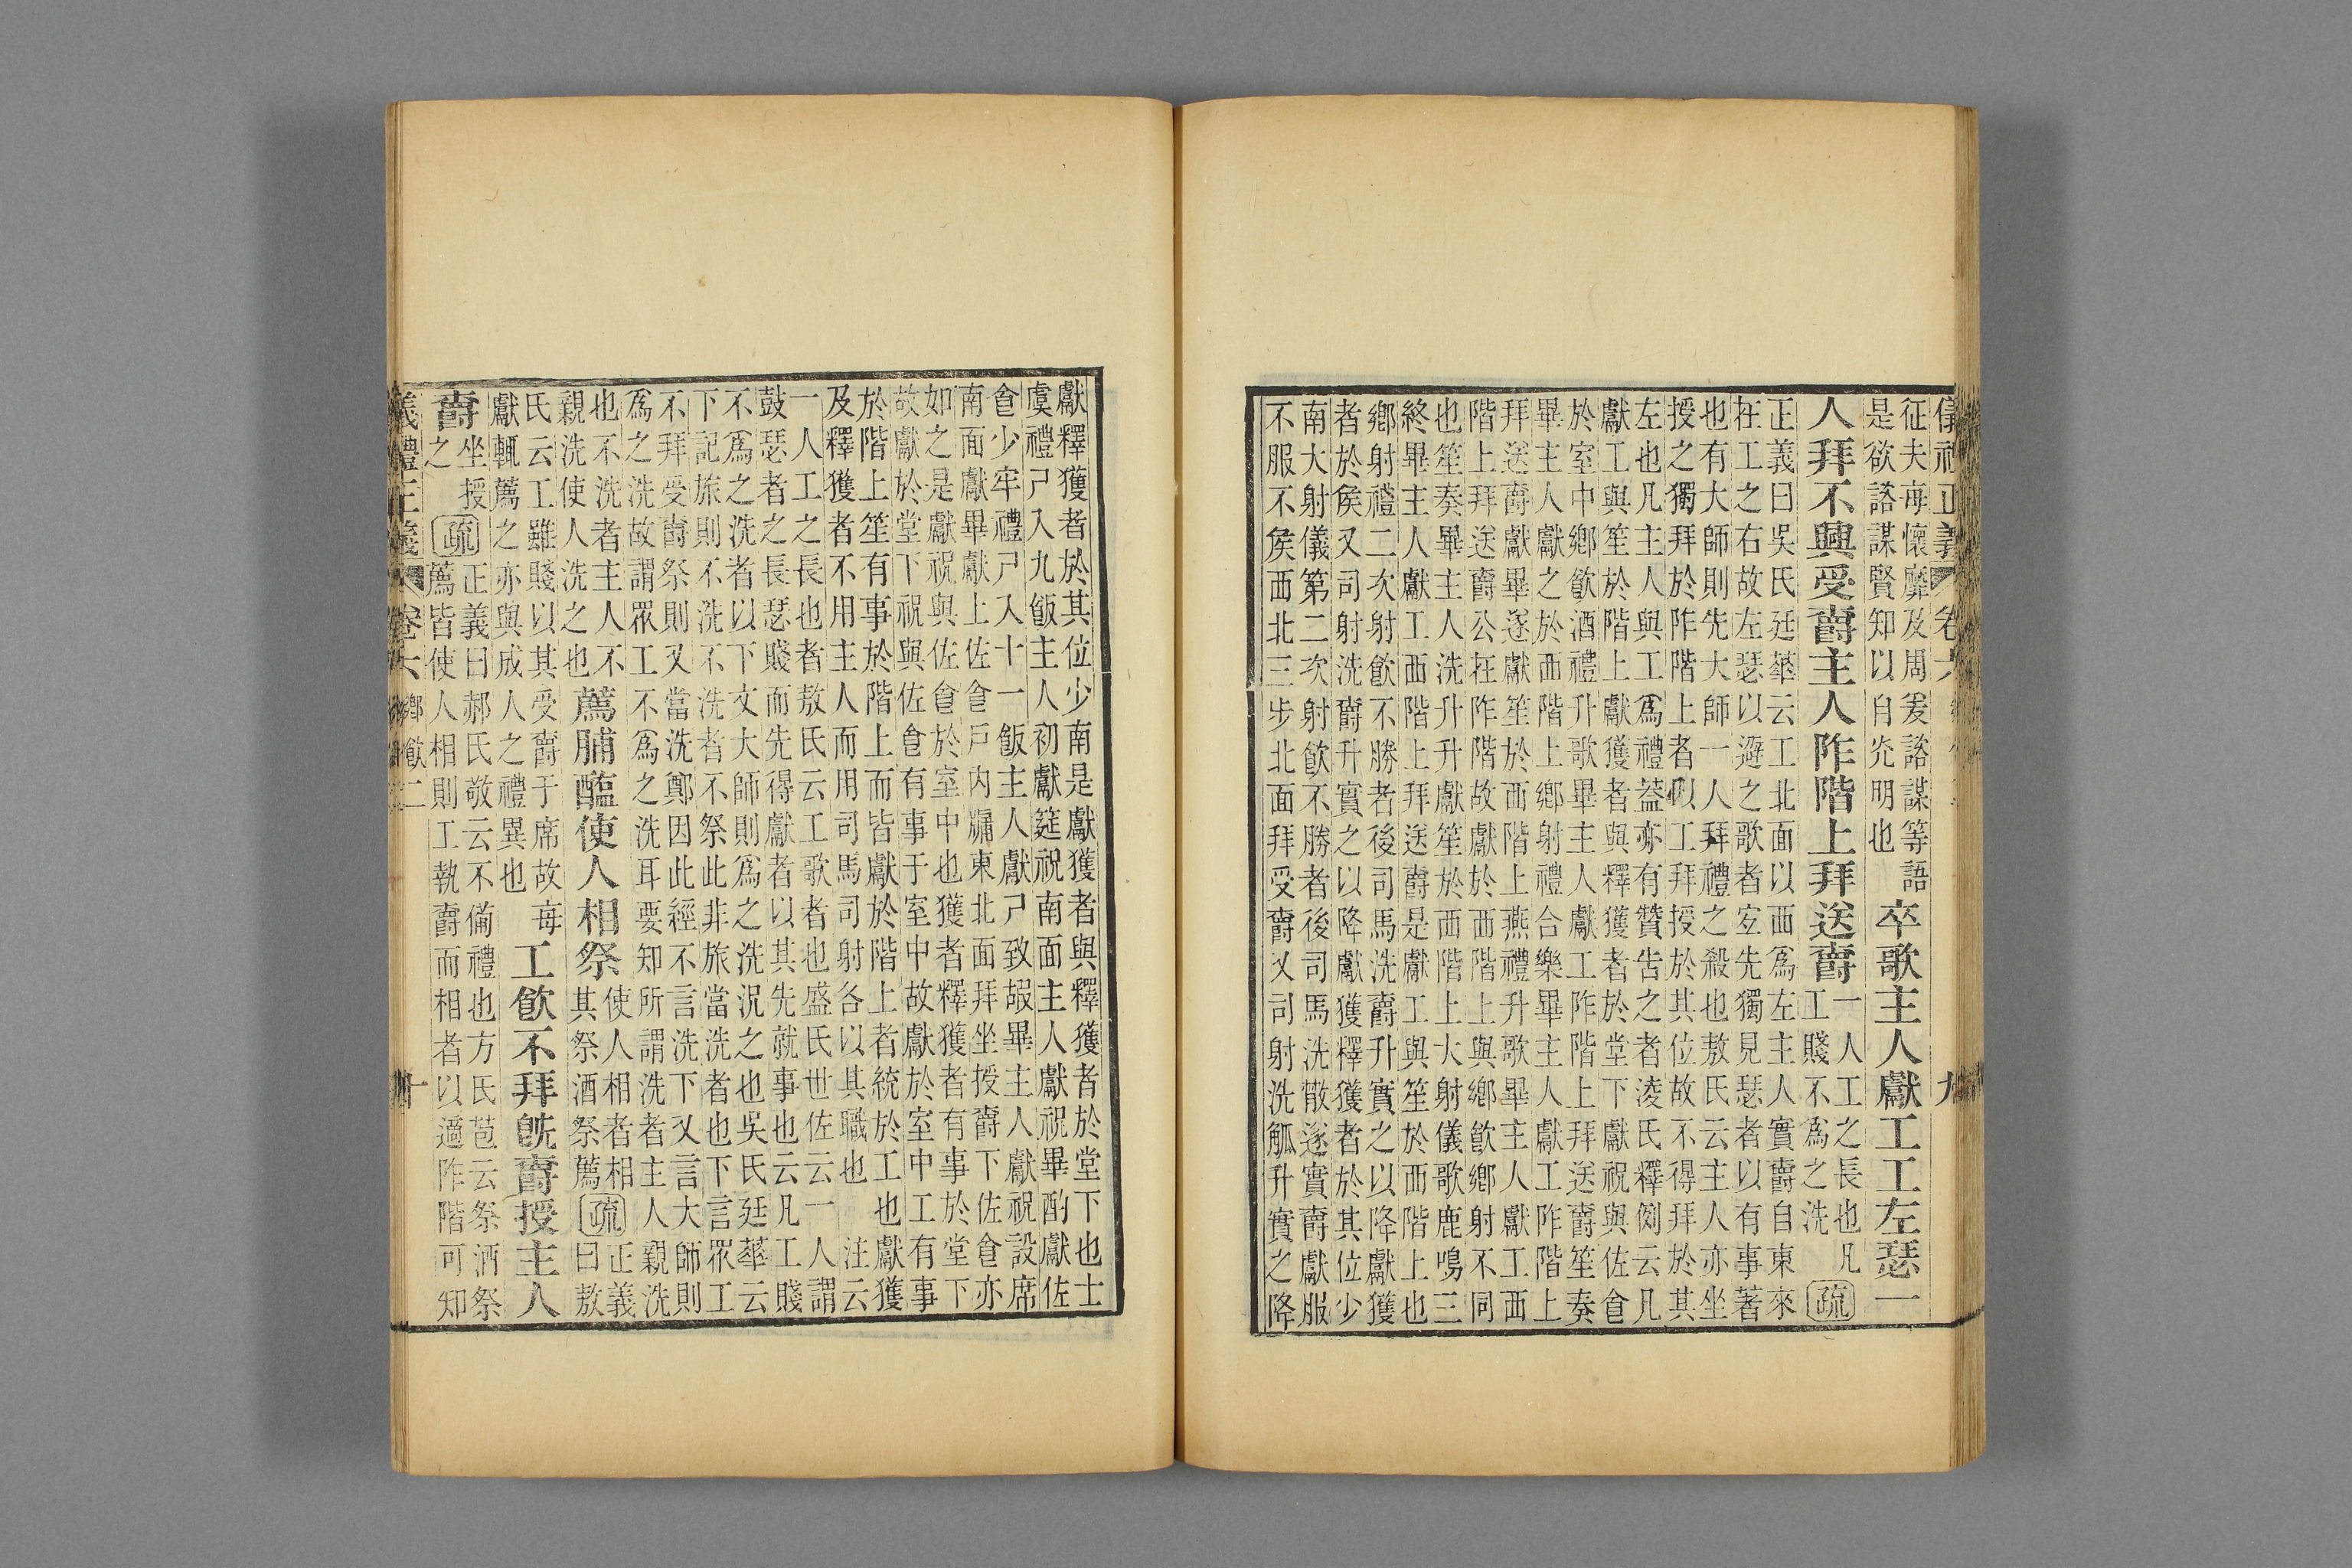 儀禮正義 卷六 九
征夫每懷靡及周爰諮謀等語
是欲諮謀賢知以自光明也
卒歌主人獻工工左瑟一
人拜不興受爵主人阼階上拜送爵
一人工之長也凡
工賤不為之洗
疏
正義曰吳氏廷華云工北面以西為左主人實爵自東來
在工之右故左瑟以避之歌者宐先獨見瑟者以有事著
也有大師則先大師一人拜禮之殺也敖氏云主人亦坐
授之獨拜於阼階上者以工拜授於其位故不得拜於其
左也凡主人與工為禮葢亦有贊告之者淩氏釋例云凡
獻工與笙於階上獻獲者與釋獲者於堂下獻祝與佐食
於室中鄉飲酒禮升歌畢主人獻工阼階上拜送爵笙奏
畢主人獻之於西階上鄉射禮合樂畢主人獻工阼階上
拜送爵獻畢遂獻笙於西階上燕禮升歌畢主人獻工西
階上拜送爵公在阼階故獻於西階上與鄉飲鄉射不同
也笙奏畢主人洗升升獻笙於西階上大射儀歌鹿鳴三
終畢主人獻工西階上拜送爵是獻工與笙於西階上也
鄉射禮二次射飲不勝者後司馬洗爵升實之以降獻獲
者於侯又司射洗爵升實之以降獻獲釋獲者於其位少
南大射儀第二次射飲不勝者後司馬洗散遂實爵獻服
不服不侯西北三步北面拜受爵又司射洗觚升實之降
獻釋獲者於其位少南是獻獲者與釋獲者於堂下也士
虞禮尸入九飯主人初獻筵祝南面主人獻祝畢酌獻佐
食少牢禮尸入十一飯主人獻尸致嘏畢主人獻祝設席
南面獻畢獻上佐食戶內牖東北面拜坐授爵下佐食亦
如之是獻祝與佐食於室中也獲者釋獲者有事於堂下
故獻於堂下祝與佐食有事于室中故獻於室中工有事
於階上笙有事於階上而皆獻於階上者統於工也獻獲
及釋獲者不用主人而用司馬司射各以其職也 注云
一人工之長也者敖氏云工歌者也盛氏世佐云一人謂
鼓瑟者之長瑟賤而先得獻者以其先就事也云凡工賤
不為之洗者以下文大師則為之洗況之也吳氏廷華云
下記旅則不洗不洗者不祭此非旅當洗者也下言眾工
不拜受爵祭則又當洗鄭因此經不言洗下又言大師則
為之洗故謂眾工不為之洗耳要知所謂洗者主人親洗
也不洗者主人不
親洗使人洗之也
薦脯醢使人相祭
使人相者相
其祭酒祭薦
疏
正義
曰敖
氏云工雖賤以其受爵于席故每
獻輒薦之亦與成人之禮異也
工飲不拜既爵授主人
爵
坐授
之
疏
正義曰郝氏敬云不備禮也方氏苞云祭酒祭
薦皆使人相則工執爵而相者以適阼階可知
儀禮正義 卷六 鄉飲二 十